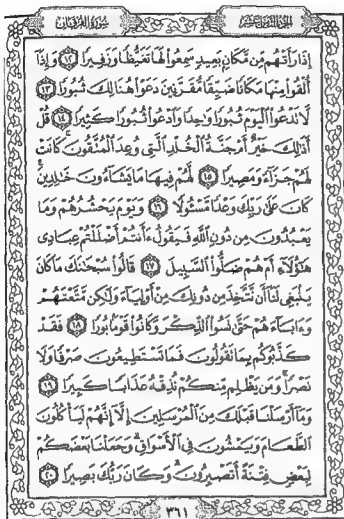 سورة الفرقان
الجزء الثامن عشر
إِذَا رَأَتْهُم مِّن مَّكَانٍ بَعِيدٍ سَمِعُوا۟ لَهَا تَغَيُّظًا وَزَفِيرًا ١٢ وَإِذَآ
أُلْقُوا۟ مِنْهَا مَكَانًا ضَيِّقًا مُّقَرَّنِينَ دَعَوْا۟ هُنَالِكَ ثُبُورًا ١٣
لَّا تَدْعُوا۟ ٱلْيَوْمَ ثُبُورًا وَٰحِدًا وَٱدْعُوا۟ ثُبُورًا كَثِيرًا ١٤ قُلْ
أَذَٰلِكَ خَيْرٌ أَمْ جَنَّةُ ٱلْخُلْدِ ٱلَّتِى وُعِدَ ٱلْمُتَّقُونَ كَانَتْ
لَهُمْ جَزَآءً وَمَصِيرًا ١٥ لَّهُمْ فِيهَا مَا يَشَآءُونَ خَٰلِدِينَ
كَانَ عَلَىٰ رَبِّكَ وَعْدًا مَّسْـُٔولًا ١٦ وَيَوْمَ يَحْشُرُهُمْ وَمَا
يَعْبُدُونَ مِن دُونِ ٱللَّهِ فَيَقُولُ ءَأَنتُمْ أَضْلَلْتُمْ عِبَادِى
هَٰٓؤُلَآءِ أَمْ هُمْ ضَلُّوا۟ ٱلسَّبِيلَ ١٧ قَالُوا۟ سُبْحَٰنَكَ مَا كَانَ
يَنۢبَغِى لَنَآ أَن نَّتَّخِذَ مِن دُونِكَ مِنْ أَوْلِيَآءَ وَلَٰكِن مَّتَّعْتَهُمْ
وَءَابَآءَهُمْ حَتَّىٰ نَسُوا۟ ٱلذِّكْرَ وَكَانُوا۟ قَوْمًۢا بُورًا ١٨ فَقَدْ
كَذَّبُوكُم بِمَا تَقُولُونَ فَمَا تَسْتَطِيعُونَ صَرْفًا وَلَا
نَصْرًا وَمَن يَظْلِم مِّنكُمْ نُذِقْهُ عَذَابًا كَبِيرًا ١٩
وَمَآ أَرْسَلْنَا قَبْلَكَ مِنَ ٱلْمُرْسَلِينَ إِلَّآ إِنَّهُمْ لَيَأْكُلُونَ
ٱلطَّعَامَ وَيَمْشُونَ فِى ٱلْأَسْوَاقِ وَجَعَلْنَا بَعْضَكُمْ
لِبَعْضٍ فِتْنَةً أَتَصْبِرُونَ وَكَانَ رَبُّكَ بَصِيرًا ٢٠
٣٦١